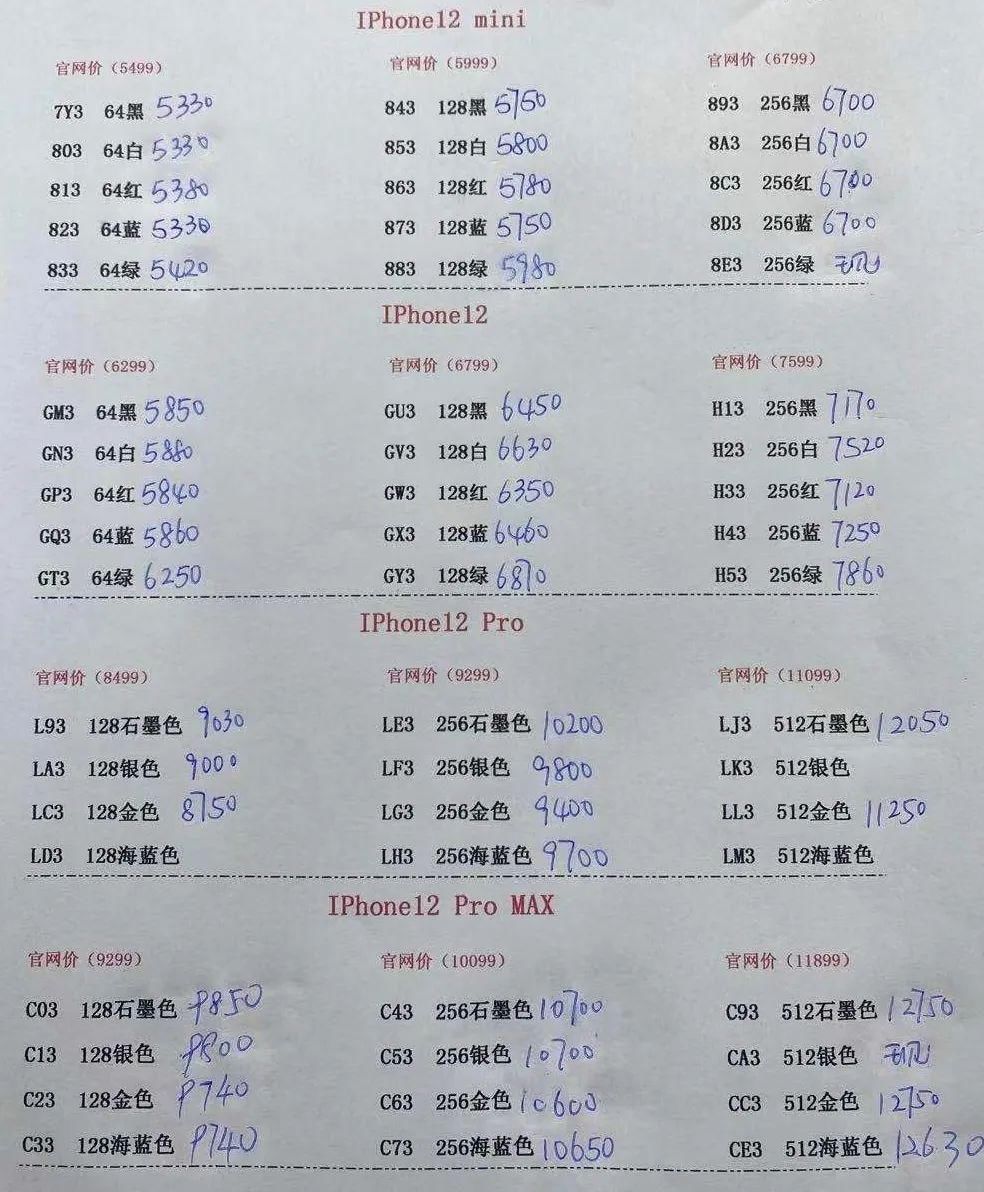 IPhone12 mini
官网价（5499） 官网价（5999） 官网价（6799）
7Y3 64黑 5330 843 128黑 5750 893 256黑 6700
803 64白 5330 853 128白 5800 8A3 256白 6700
813 64红 5380 863 128红 5780 8C3 256红 6700
823 64蓝 5330 873 128蓝 5750 8D3 256蓝 6700
833 64绿 5420 883 128绿 5980 8E3 256绿
IPhone12
官网价（6299） 官网价（6799） 官网价（7599）
GM3 64黑 5850 GU3 128黑 6450 H13 256黑 7170
GN3 64白 5880 GV3 128白 6630 H23 256白 7520
GP3 64红 5840 GW3 128红 6350 H33 256红 7120
GQ3 64蓝 5860 GX3 128蓝 6460 H43 256蓝 7250
GT3 64绿 6250 GY3 128绿 6870 H53 256绿 7860
IPhone12 Pro
官网价（8499） 官网价（9299） 官网价（11099）
L93 128石墨色 9030 LE3 256石墨色 10200 LJ3 512石墨色 12050
LA3 128银色 9000 LF3 256银色 9800 LK3 512银色
LC3 128金色 8750 LG3 256金色 9400 LL3 512金色 11250
LD3 128海蓝色 LH3 256海蓝色 9700 LM3 512海蓝色
IPhone12 Pro MAX
官网价（9299） 官网价（10099） 官网价（11899）
C03 128石墨色 9850 C43 256石墨色 10700 C93 512石墨色 12750
C13 128银色 9800 C53 256银色 10700 CA3 512银色
C23 128金色 9740 C63 256金色 10600 CC3 512金色 12750
C33 128海蓝色 9740 C73 256海蓝色 10650 CE3 512海蓝色 12630